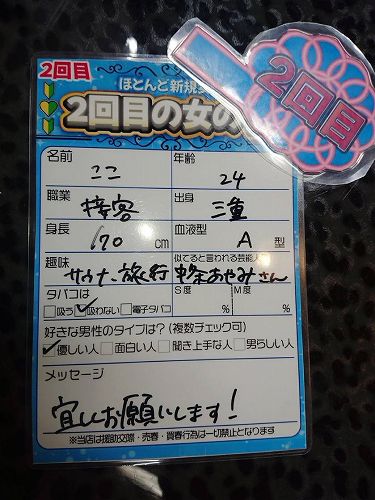 2回目
ほとんど新規
2回目の女の
2回目
名前 ここ 年齢 24
職業 接客 出身 三重
身長 170 cm 血液型 A 型
趣味 サウナ、旅行 似てると言われる芸能人 中条あやみさん
タバコは S度 M度
吸う ✓吸わない 電子タバコ % %
好きな男性のタイプは?(複数チェック可)
✓優しい人 面白い人 聞き上手な人 男らしい人
メッセージ
宜しくお願いします!
※当店は援助交際・売春・買春行為は一切禁止となります